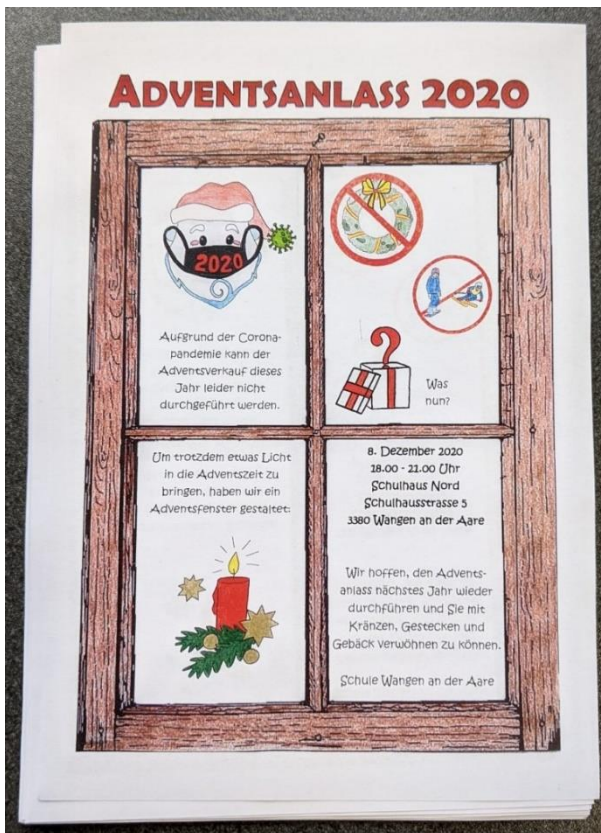 ADVENTSANLASS 2020
2020
Aufgrund der Corona-
pandemie kann der
Adventsverkauf dieses
Jahr leider nicht
durchgeführt werden.
Was
nun?
Um trotzdem etwas Licht
in die Adventszeit zu
bringen, haben wir ein
Adventsfenster gestaltet:
8. Dezember 2020
18.00 - 21.00 Uhr
Schulhaus Nord
Schulhausstrasse 5
3380 Wangen an der Aare
Wir hoffen, den Advents-
anlass nächstes Jahr wieder
durchführen und Sie mit
Kränzen, Gestecken und
Gebäck verwöhnen zu können.
Schule Wangen an der Aare